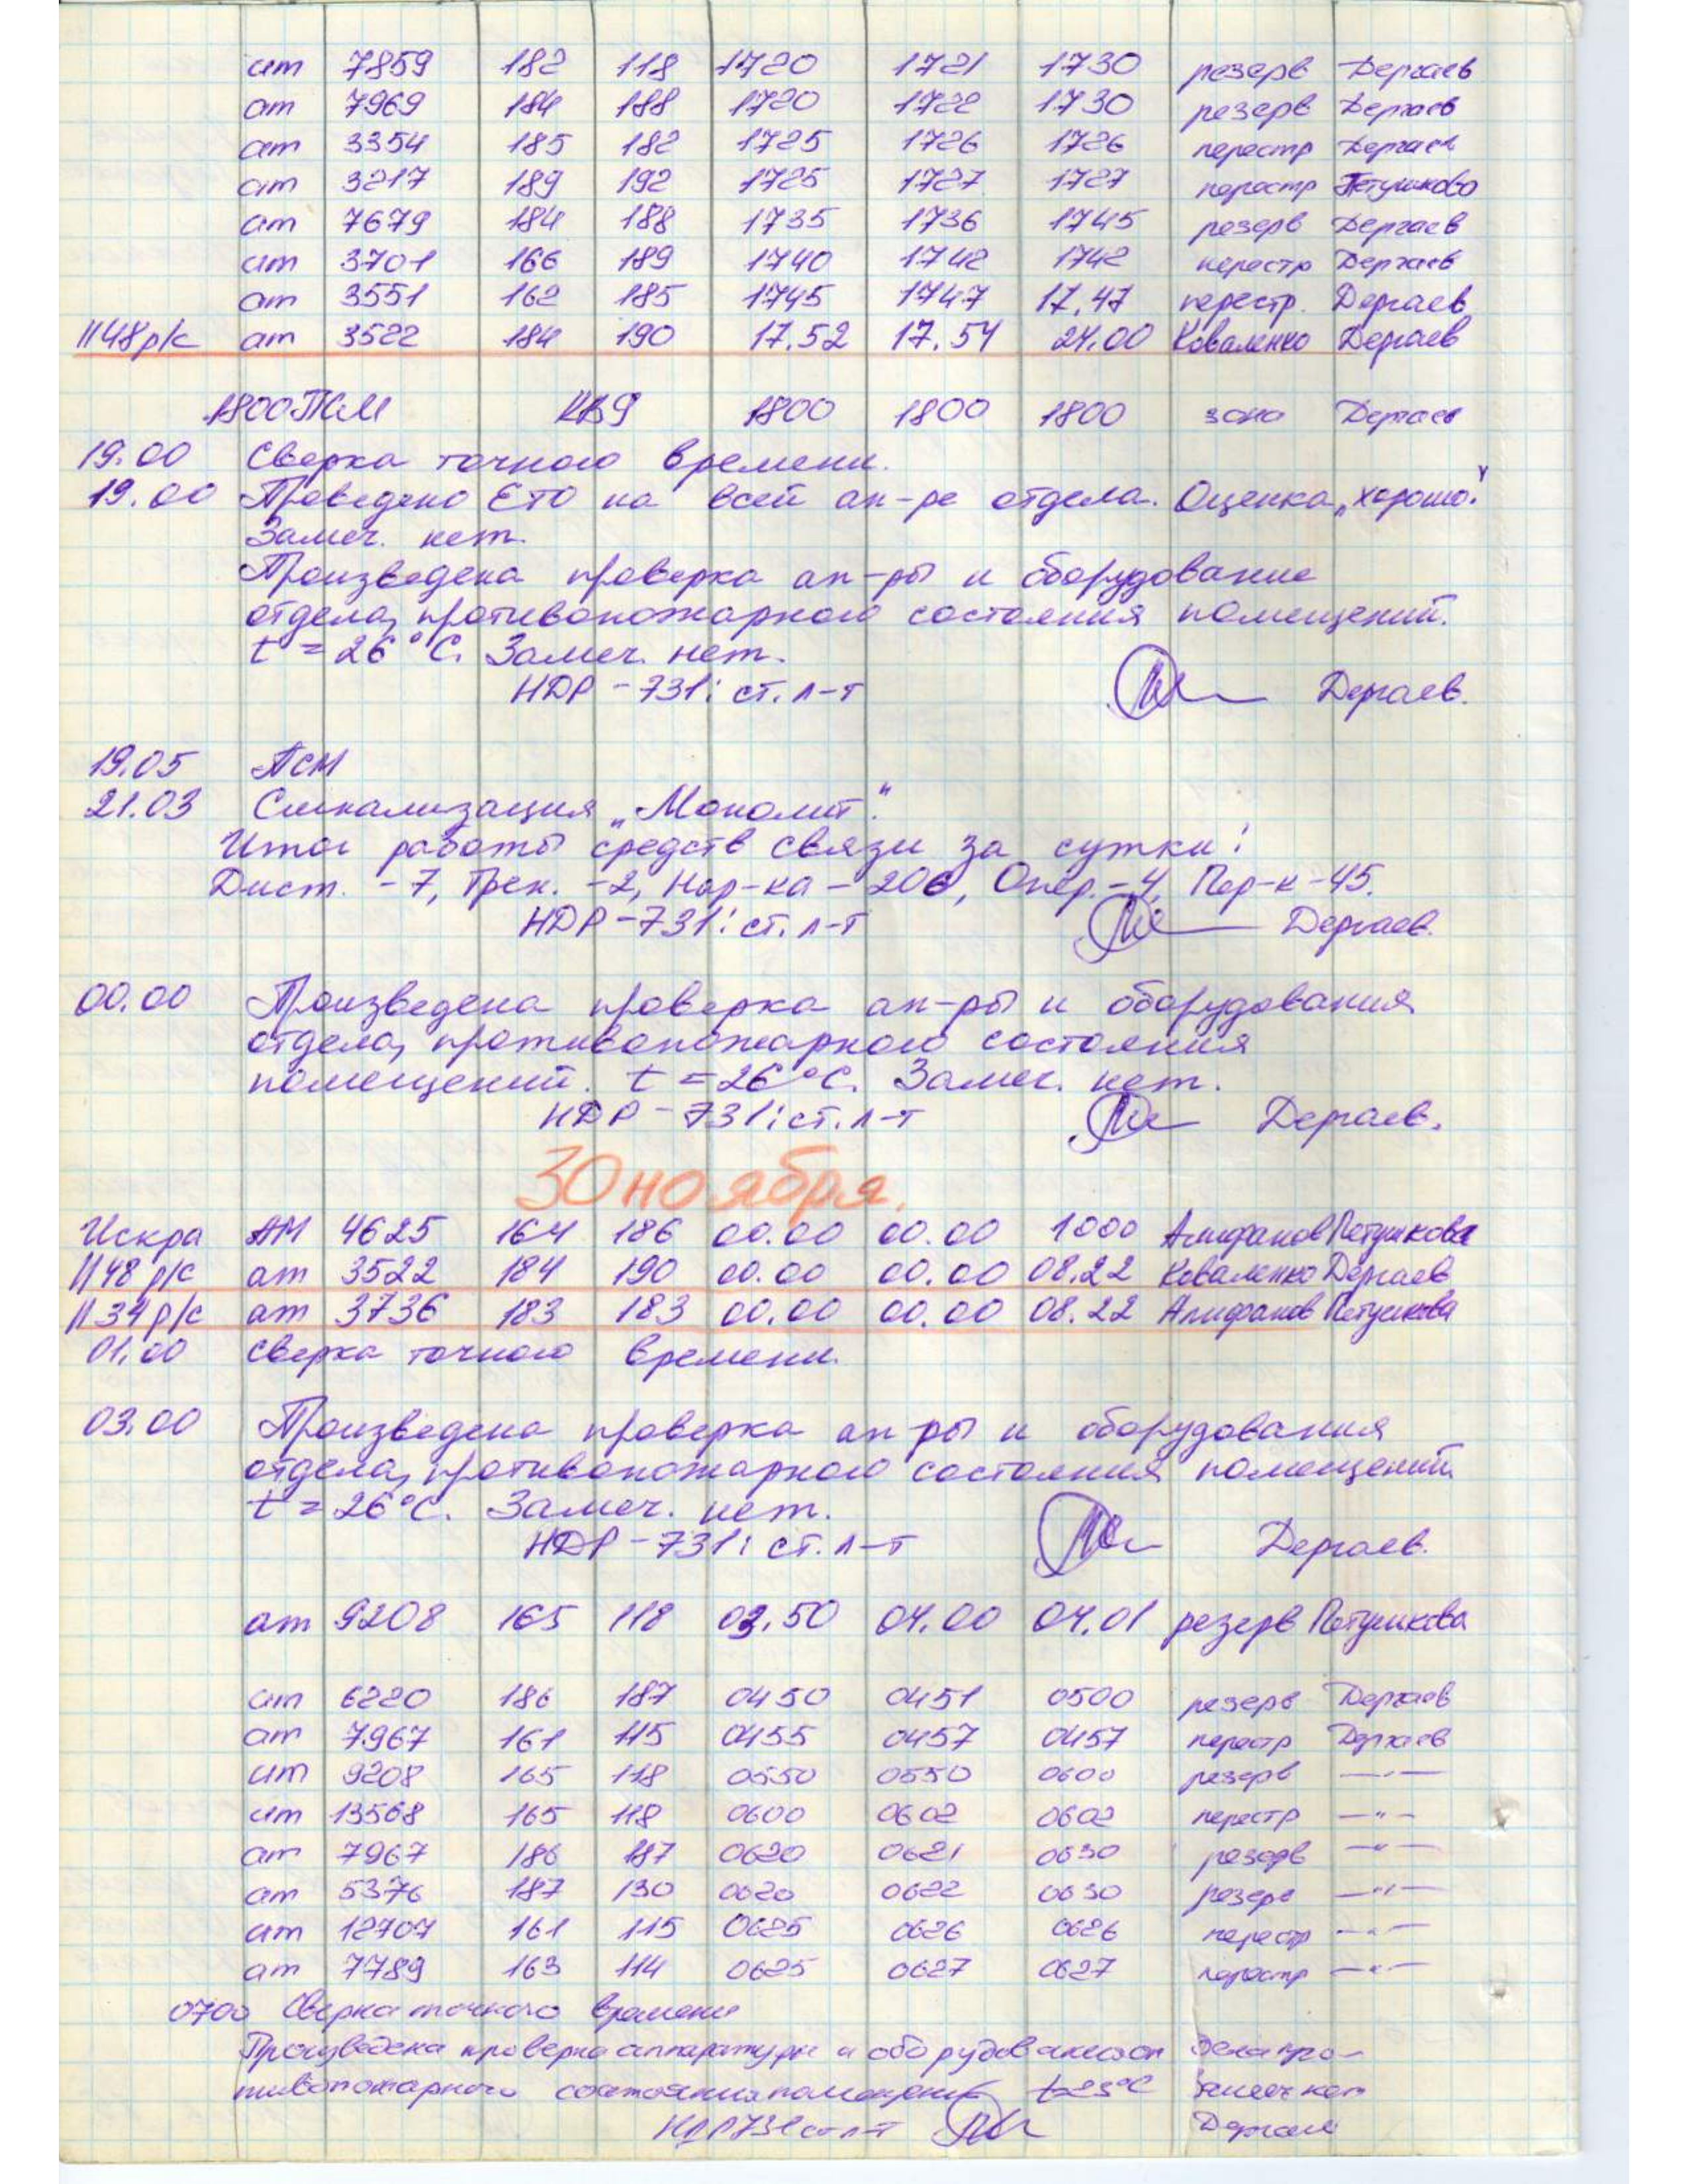 ат 7859 182 118 1720 1721 1730 резерв Дергаев
ат 7969 184 188 1720 1722 1730 резерв Дергаев
ат 3354 185 182 1725 1726 1726 перестр Дергаев
ат 3217 189 192 1725 1727 1727 перестр Петушково
ат 7679 184 188 1735 1736 1745 резерв Дергаев
ат 3701 166 189 1740 1742 1742 перестр Дергаев
ат 3551 162 185 1745 1747 17.47 перестр. Дергаев
1148 р/с ат 3522 184 190 17.52 17.54 24.00 Коваленко Дергаев
1800 ПСМ КВ9 1800 1800 1800 зона Дергаев
19.00 Сверка точного времени.
19.00 Проведено ЕТО на всей ап-ре отдела. Оценка „хорошо."
Замеч. нет.
Произведена проверка ап-ры и оборудование
отдела, противопожарного состояния помещений.
t = 26°С. Замеч. нет.
НДР-731: ст. л-т Дергаев.
19.05 ПСМ
21.03 Сигнализация „Монолит".
Итог работы средств связи за сутки:
Дист. - 7, Трен. - 2, Нар-ка - 206, Опер. - 4, Пер-к - 45.
НДР-731: ст. л-т Дергаев.
00.00 Произведена проверка ап-ры и оборудования
отдела, противопожарного состояния
помещений. t = 26°С. Замеч. нет.
НДР-731: ст. л-т Дергаев.
30 ноября.
Искра АМ 4625 164 186 00.00 00.00 1000 Алифанов Петушкова
1148 р/с ат 3522 184 190 00.00 00.00 08.22 Коваленко Дергаев
1134 р/с ат 3736 183 183 00.00 00.00 08.22 Алифанов Петушкова
01.00 Сверка точного времени.
03.00 Произведена проверка ап-ры и оборудования
отдела, противопожарного состояния помещений.
t = 26°С. Замеч. нет.
НДР-731: ст. л-т Дергаев.
ат 9208 165 118 03.50 04.00 04.01 резерв Петушкова
ат 6220 186 187 0450 0451 0500 резерв Дергаев
ат 7967 161 115 0455 0457 0457 перестр Дергаев
ат 9208 165 118 0550 0550 0600 резерв —"—
ат 13568 165 118 0600 0602 0602 перестр —"—
ат 7967 186 187 0620 0621 0630 резерв —"—
ат 5376 187 130 0620 0622 0630 резерв —"—
ат 12707 161 115 0625 0626 0626 перестр —"—
ат 7789 163 114 0625 0627 0627 перестр —"—
0700 Сверка точного времени
Произведена проверка аппаратуры и оборудования отдела про-
тивопожарного состояния помещений t=25°С Замеч нет
НДР731 ст л-т Дергаев